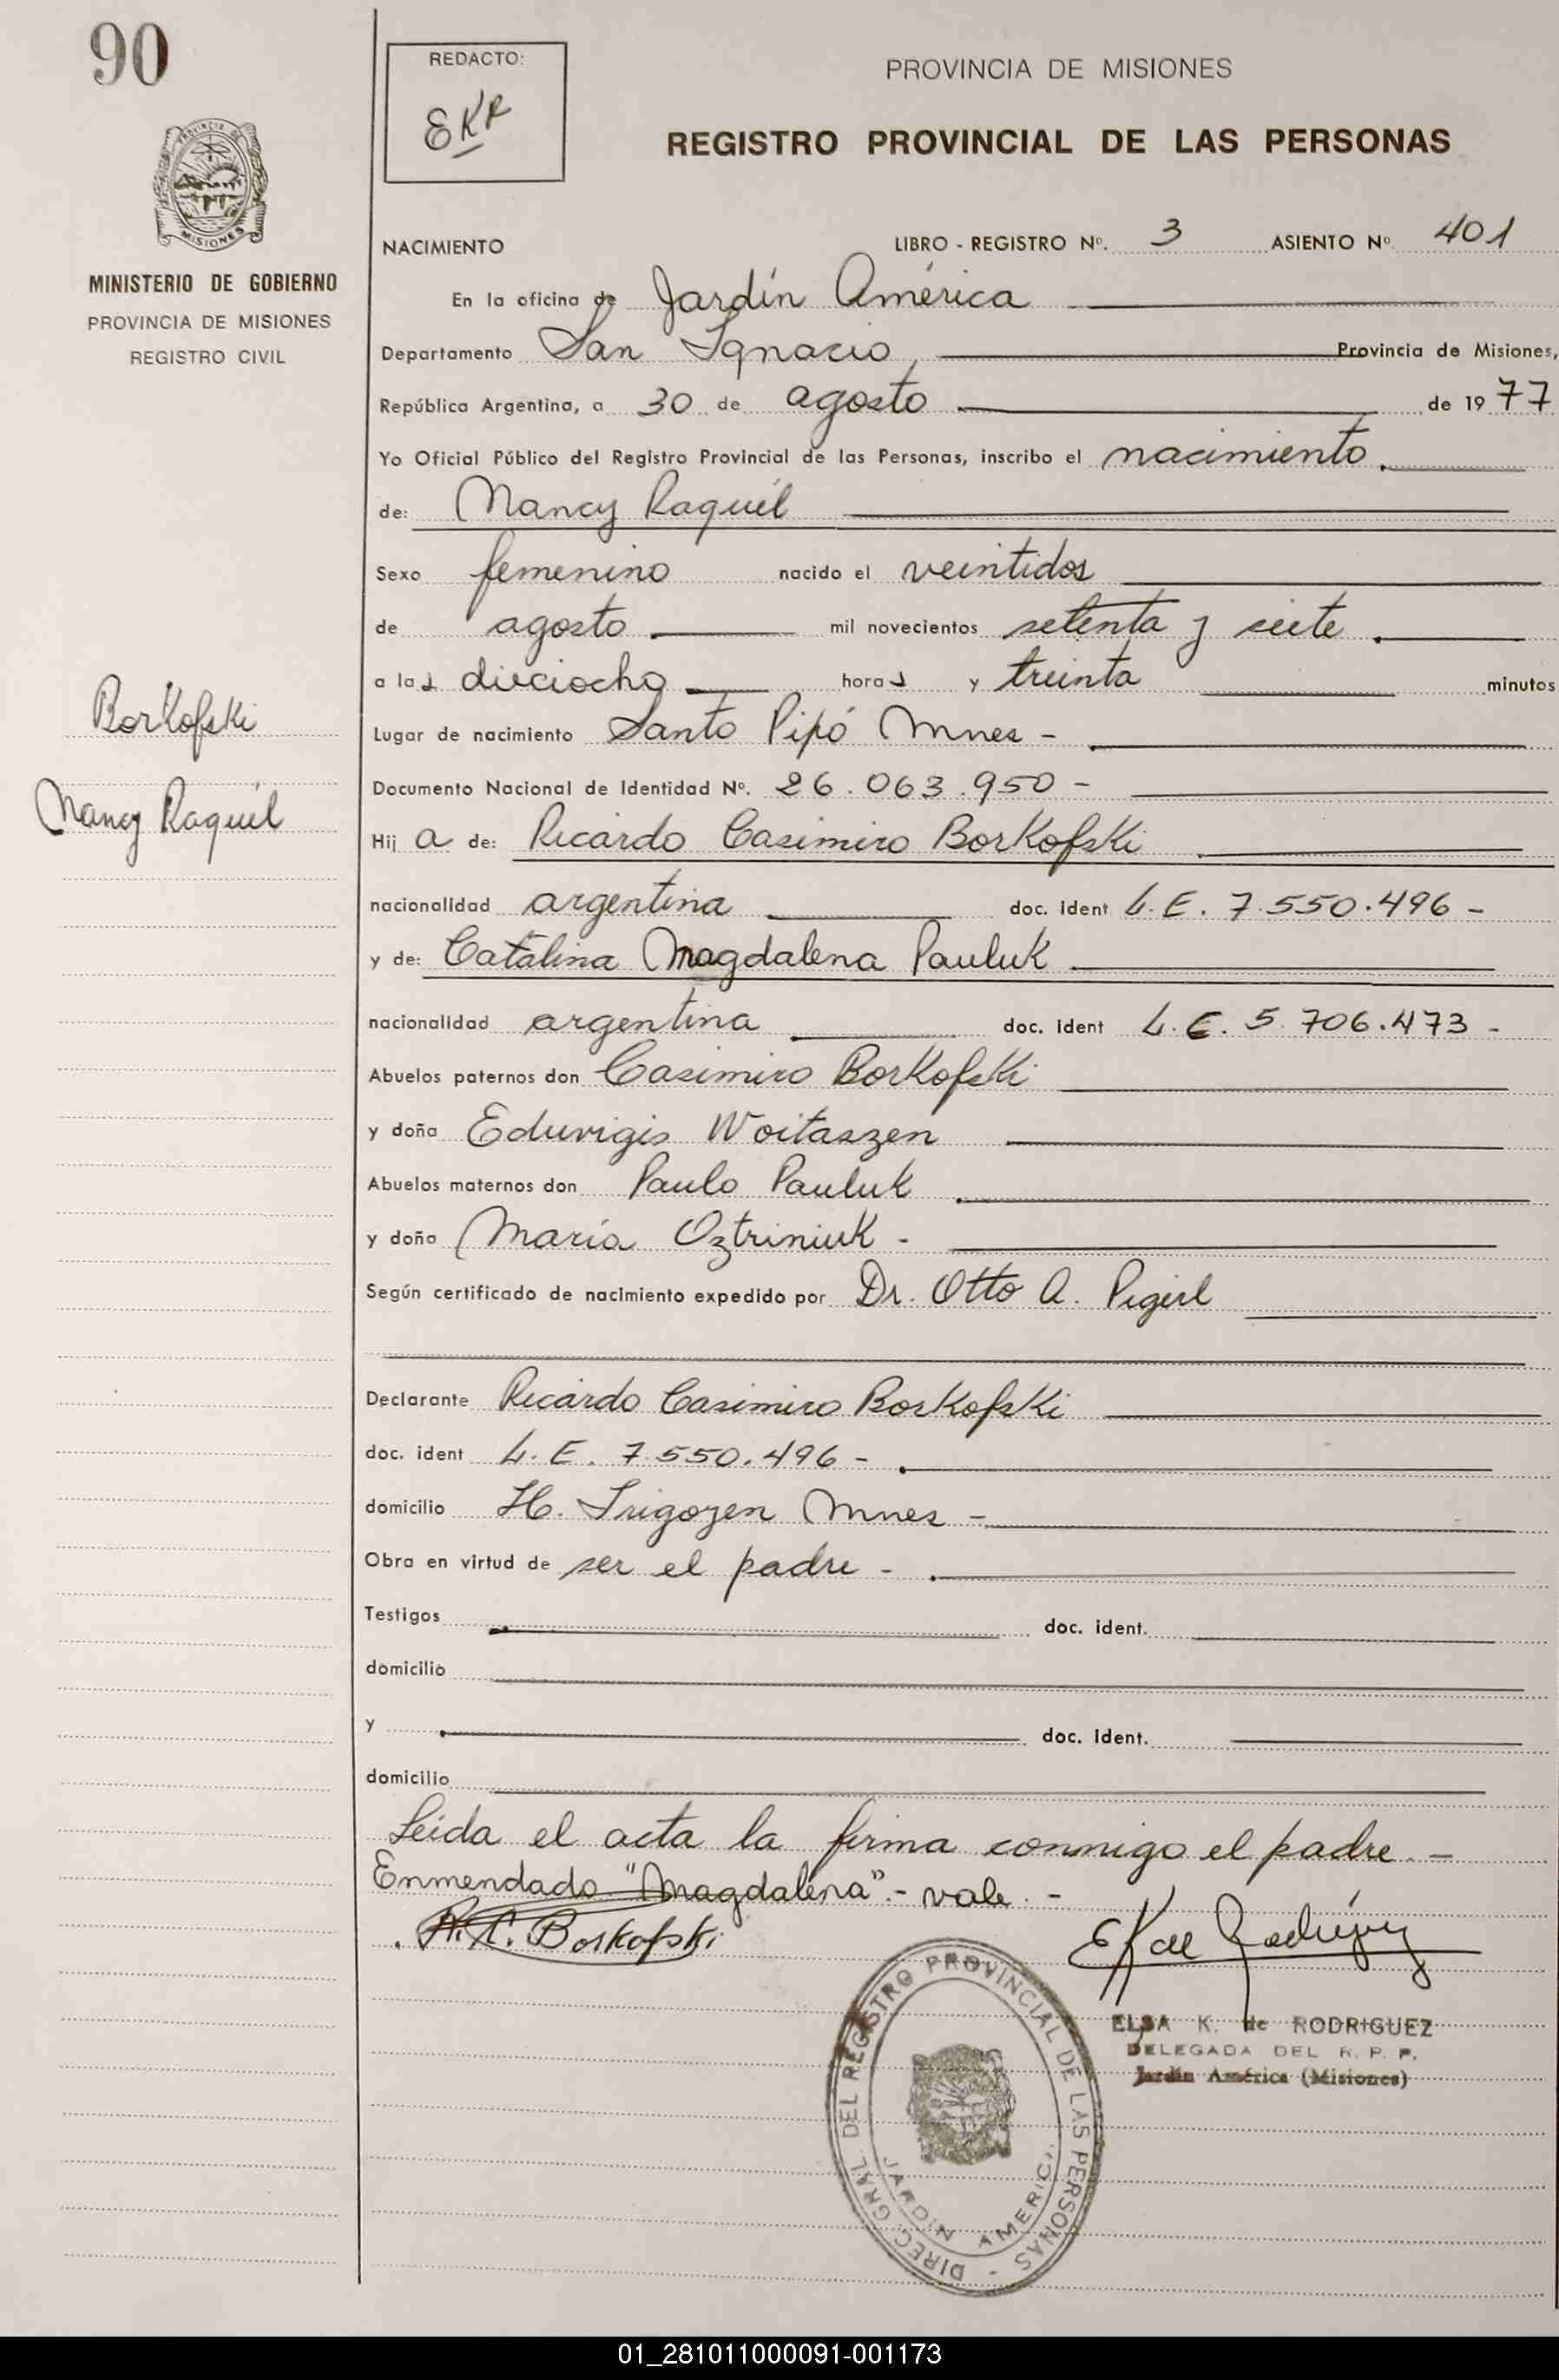 90
REDACTO:
EKR
PROVINCIA DE MISIONES
REGISTRO PROVINCIAL DE LAS PERSONAS
PROVINCIA DE
MISIONES
MINISTERIO DE GOBIERNO
PROVINCIA DE MISIONES
REGISTRO CIVIL
NACIMIENTO LIBRO - REGISTRO Nº. 3 ASIENTO Nº 401
En la oficina de Jardín América
Departamento San Ignacio, Provincia de Misiones,
República Argentina, a 30 de agosto de 1977
Yo Oficial Público del Registro Provincial de las Personas, inscribo el nacimiento
de: Nancy Raquél
Sexo femenino nacido el veintidos
de agosto mil novecientos setenta y siete
a las dieciocho horas y treinta minutos
Lugar de nacimiento Santo Pipó Mnes -
Documento Nacional de Identidad Nº. 26.063.950 -
Borkofski
Nancy Raquél
Hij a de: Ricardo Casimiro Borkofski
nacionalidad argentina doc. ident L.E. 7.550.496 -
y de: Catalina Magdalena Pauluk
nacionalidad argentina doc. ident L.C. 5.706.473 -
Abuelos paternos don Casimiro Borkofski
y doña Eduvigis Woitaszen
Abuelos maternos don Paulo Pauluk
y doña María Oztriniuk -
Según certificado de nacimiento expedido por Dr. Otto A. Pigerl
Declarante Ricardo Casimiro Borkofski
doc. ident L.E. 7.550.496 -
domicilio H. Irigoyen Mnes -
Obra en virtud de ser el padre -
Testigos doc. ident.
domicilio
y doc. ident.
domicilio
Leida el acta la firma conmigo el padre. -
Enmendado "Magdalena" - vale. -
R.C. Borkofski
EK de Rodríguez
ELSA K. de RODRIGUEZ
DELEGADA DEL R. P. P.
Jardín América (Misiones)
DIREC. GRAL. DEL REGISTRO PROVINCIAL DE LAS PERSONAS -
JARDIN AMERIC
01_281011000091-001173